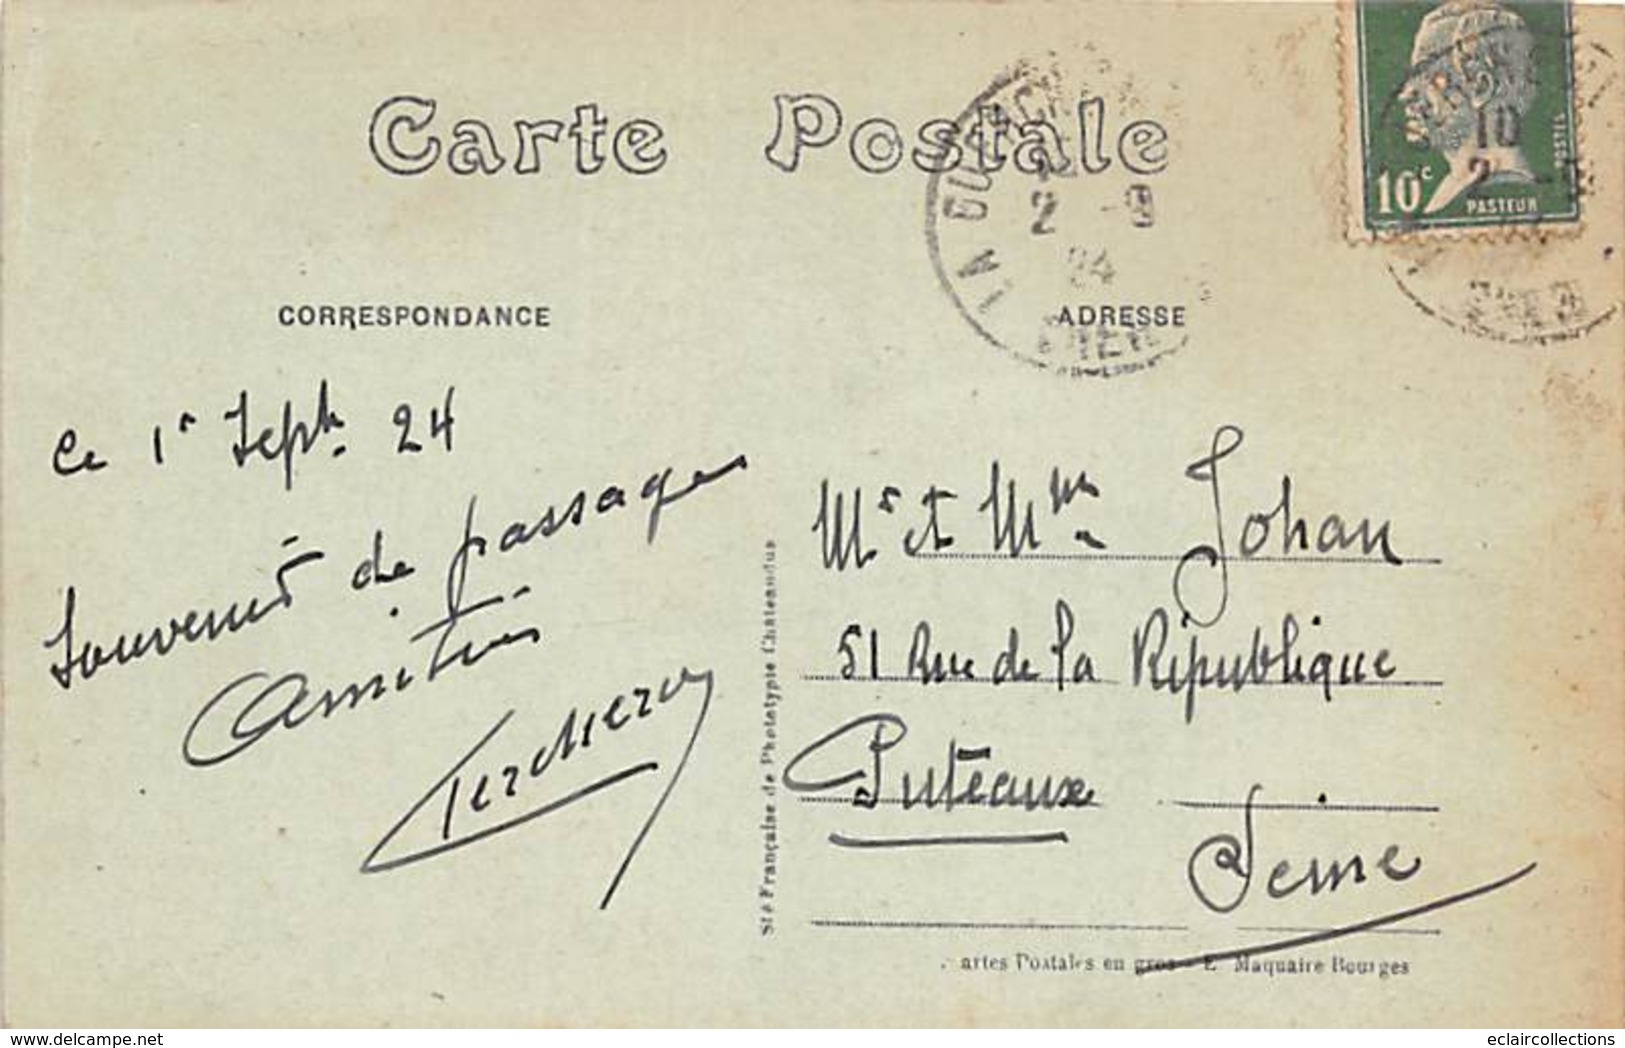 Carte Postale
CORRESPONDANCE
ADRESSE
10c
PASTEUR
POSTES
10
2
LA GU
2 -9
24
CHER
Ce 1r Septb. 24
Souvenir de passage
Amitiés
Mr et Mme Johan
51 Rue de la République
Puteaux
Seine
Sté Française de Phototypie Chateaudun
artes Postales en gros - E. Maquaire Bourges
https://www.delcampe.net
eclaircollections